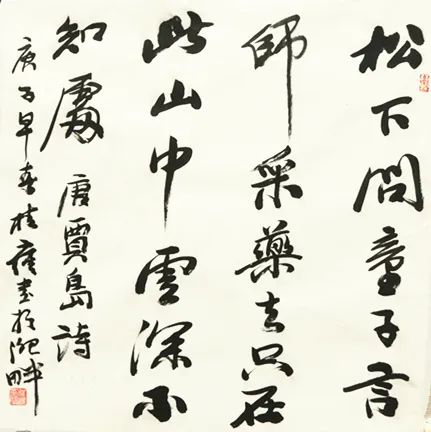 松下問童子言
師采藥去只在
此山中雲深不
知處 唐賈島詩
庚子早春桂書於畔